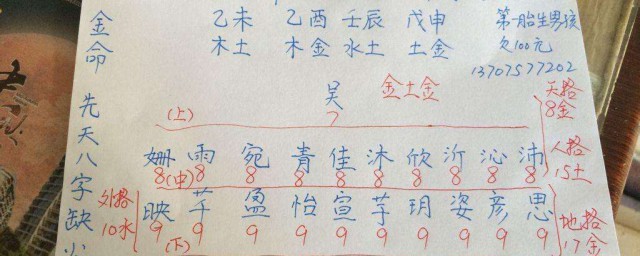 金命
乙未 乙酉 壬辰 戊申
木土 木金 水土 土金
第一胎生男孩
欠100元
13707577202
吴 金土金
(上) 7
天格
8金
先天八字缺火
姗 雨 宛 青 佳 沐 欣 沂 沁 沛
8 (中) 8 8 8 8 8 8 8 8 8
人格
15土
外格
10水
映 芊 盈 怡 宣 芋 玥 姿 彦 思
9 9 9 9 9 9 9 9 9 9
(下)
地格
17金